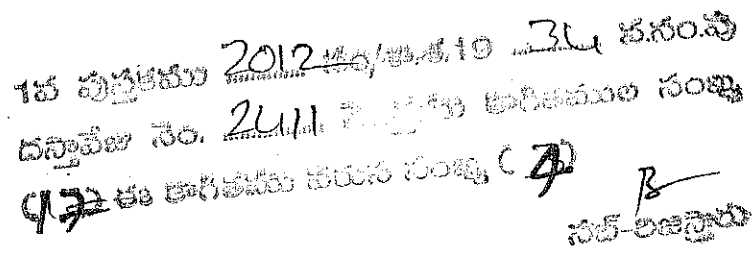 1వ పుస్తకము 2012 సం/శా.శ.19 34 వ.సం.పు
దస్తావేజు నెం. 2411 మొత్తము కాగితముల సంఖ్య
(17) ఈ కాగితము వరుస సంఖ్య (7)
సబ్-రిజిస్ట్రారు